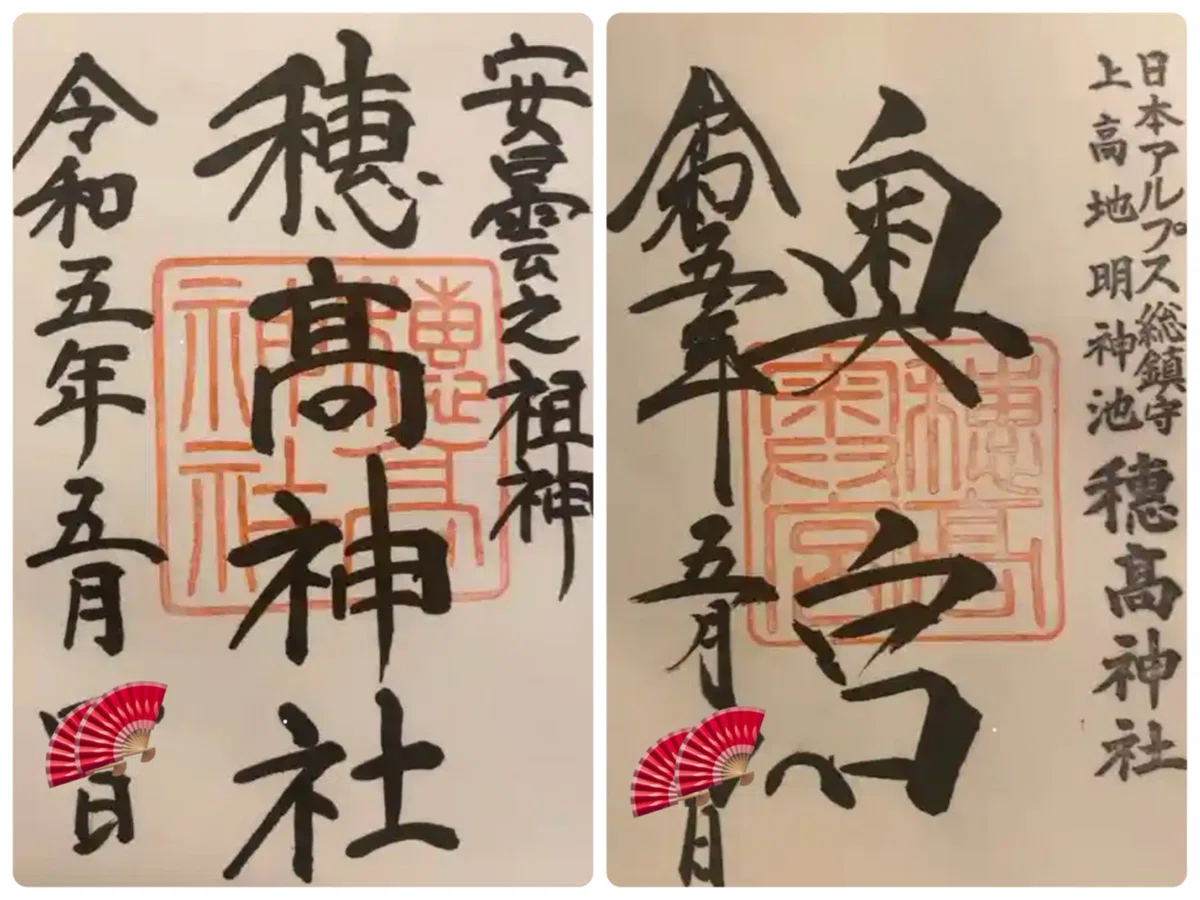 安曇之祖神
穂髙神社
令和五年五月
日
日本アルプス総鎮守
上高地明神池 穂髙神社
奥宮
令和五年五月
日